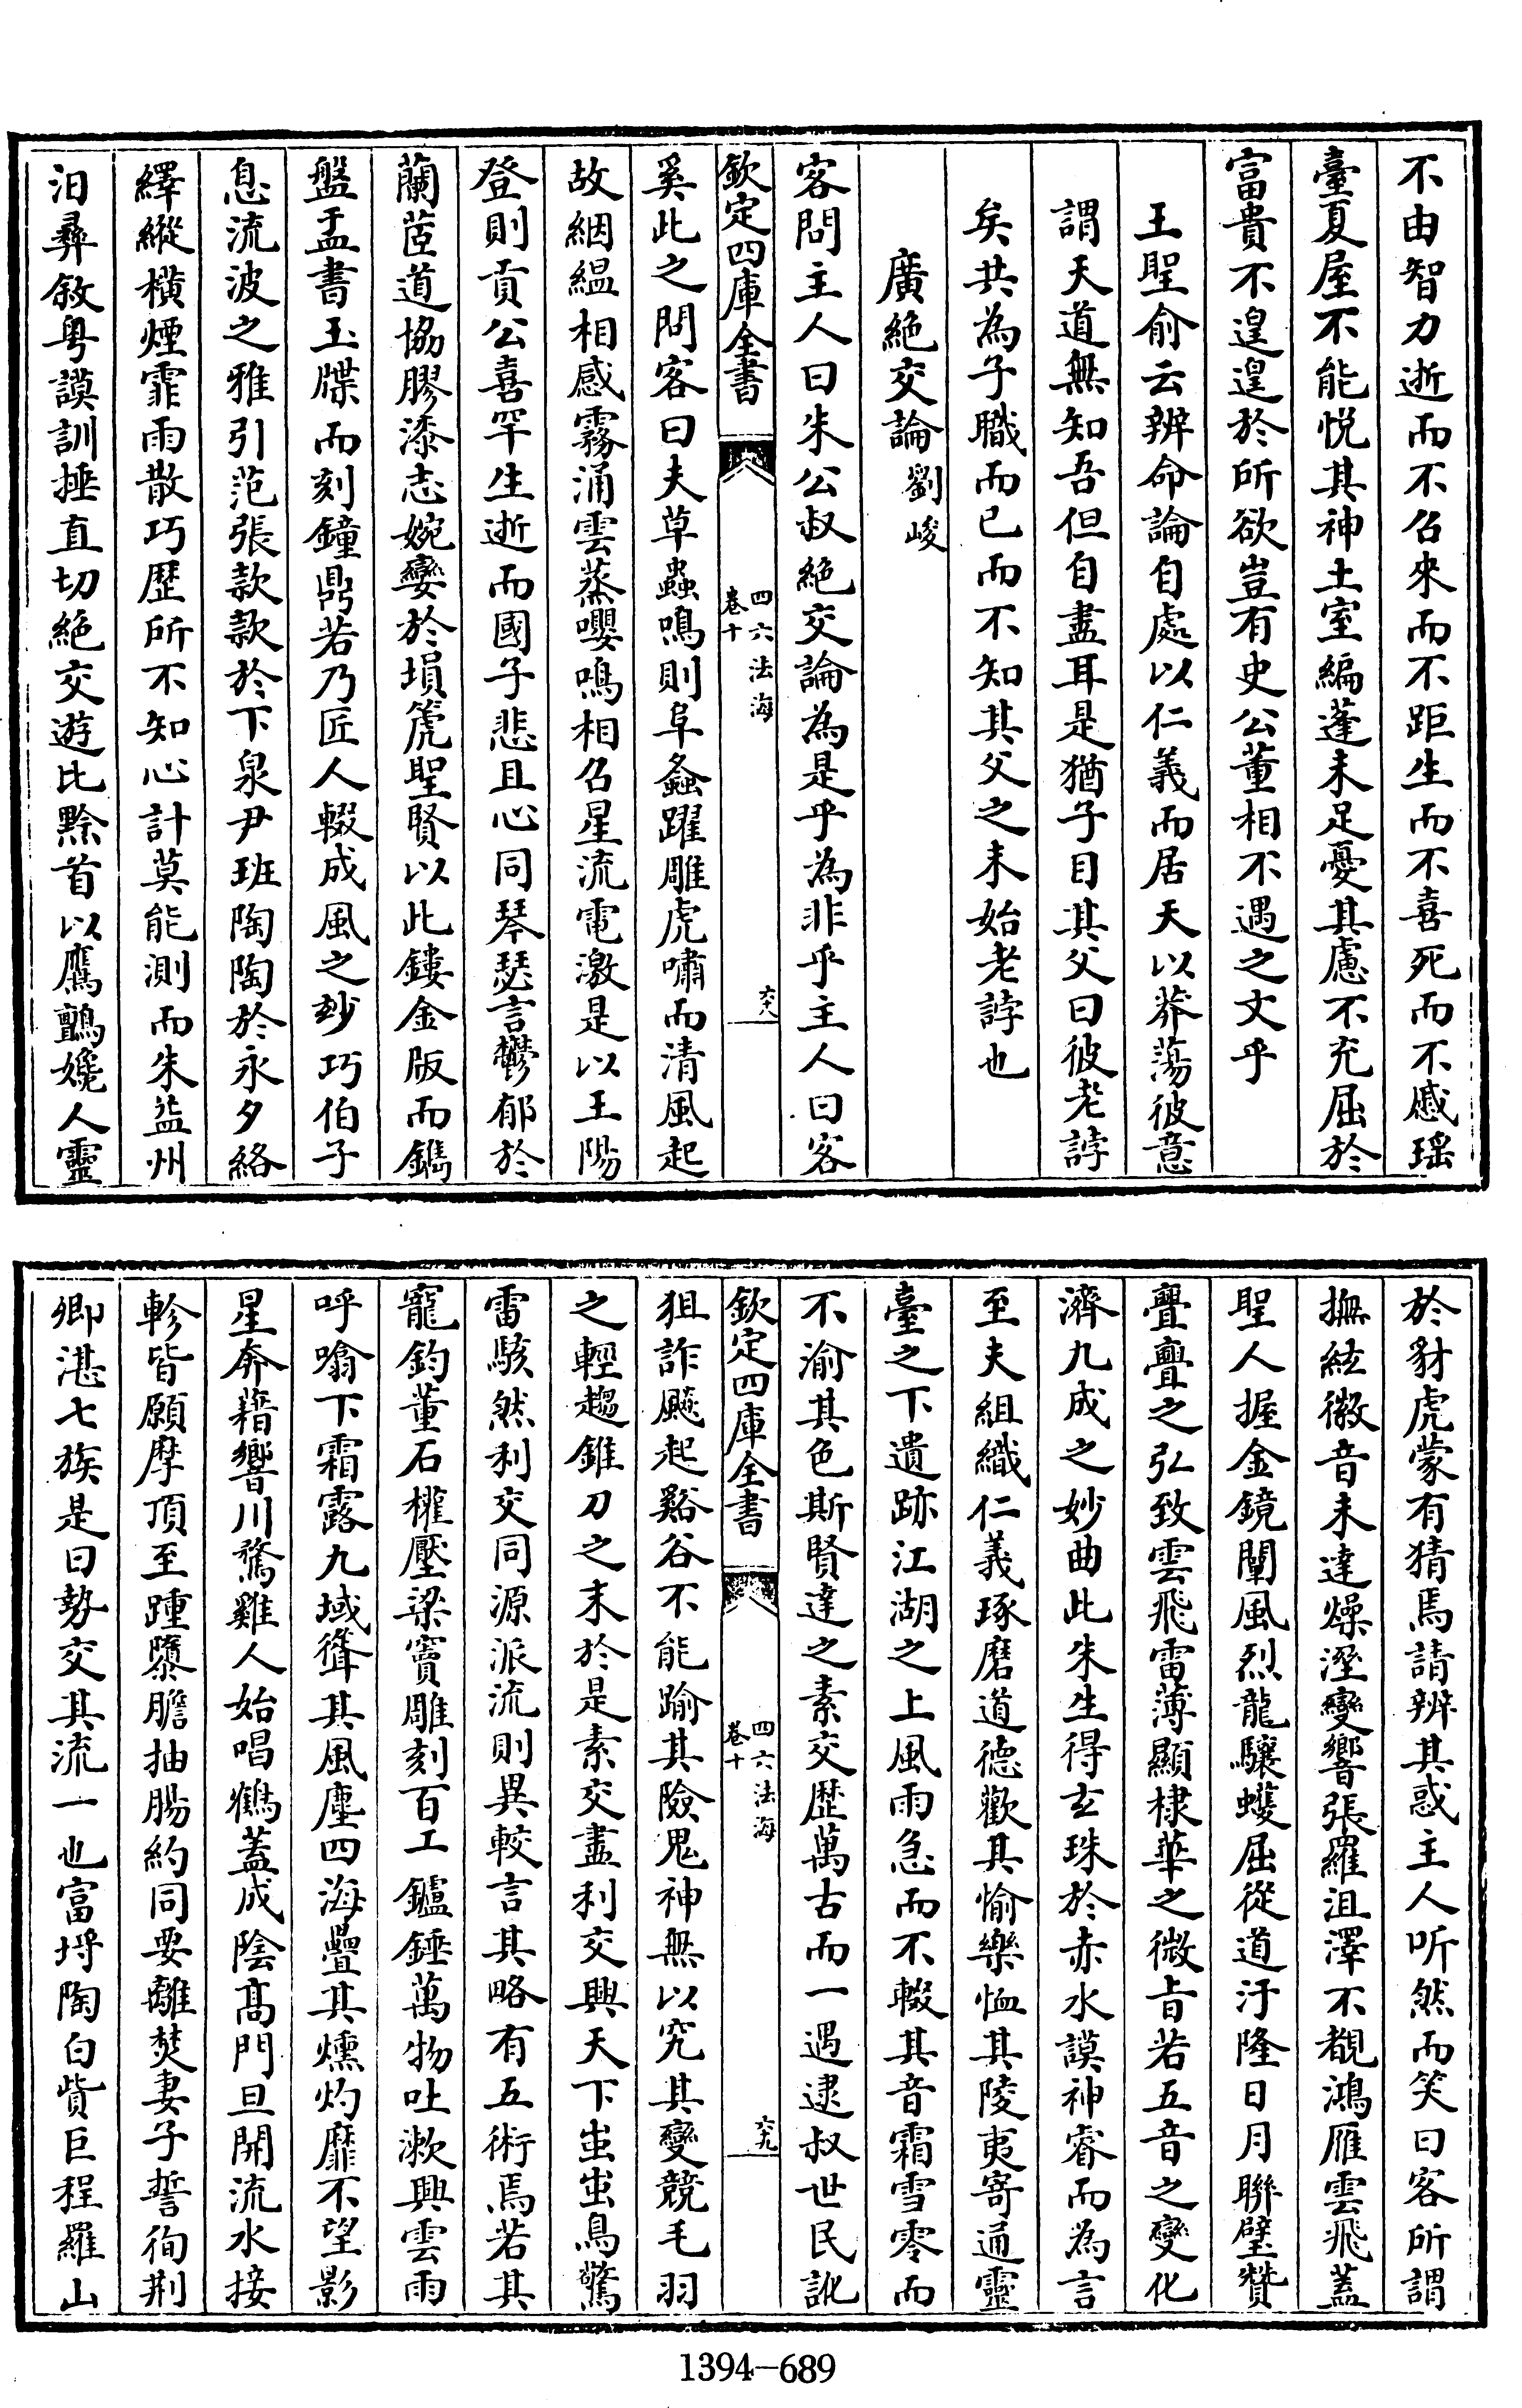 不由智力逝而不召來而不距生而不喜死而不慼瑶
臺夏屋不能悦其神土室編蓬未足憂其慮不充屈於
富貴不遑遑於所欲豈有史公董相不遇之文乎
王聖俞云辨命論自處以仁義而居天以莽蕩彼意
謂天道無知吾但自盡耳是猶子目其父曰彼老誖
矣共為子職而已而不知其父之未始老誖也
廣絶交論劉峻
客問主人曰朱公叔絶交論為是乎為非乎主人曰客
欽定四庫全書
四六法海
卷十
六十八
奚此之問客曰夫草蟲鳴則阜螽躍雕虎嘯而清風起
故絪緼相感霧涌雲蒸嚶鳴相召星流電激是以王陽
登則貢公喜罕生逝而國子悲且心同琴瑟言鬱郁於
蘭茝道協膠漆志婉孌於塤箎聖賢以此鏤金版而鐫
盤盂書玉牒而刻鐘鼎若乃匠人輟成風之妙巧伯子
息流波之雅引范張款款於下泉尹班陶陶於永夕絡
繹縱橫煙霏雨散巧歴所不知心計莫能測而朱益州
汩彞敘粤謨訓捶直切絶交遊比黔首以鷹鸇媿人靈
於豺虎蒙有猜焉請辨其惑主人听然而笑曰客所謂
撫絃徽音未達燥溼變響張羅沮澤不覩鴻雁雲飛蓋
聖人握金鏡闡風烈龍驤蠖屈從道汙隆日月聯璧贊
亹亹之弘致雲飛雷薄顯棣華之微㫖若五音之變化
濟九成之妙曲此朱生得玄珠於赤水謨神睿而為言
至夫組織仁義琢磨道德歡其愉樂恤其陵夷寄通靈
臺之下遺跡江湖之上風雨急而不輟其音霜雪零而
不渝其色斯賢達之素交歴萬古而一遇逮叔世民訛
欽定四庫全書
四六法海
卷十
六十九
狙詐飈起谿谷不能踰其險鬼神無以究其變競毛羽
之輕趨錐刀之末於是素交盡利交興天下蚩蚩鳥驚
雷駭然利交同源派流則異較言其略有五術焉若其
寵鈞董石權壓梁竇雕刻百工鑪錘萬物吐漱興雲雨
呼噏下霜露九域聳其風塵四海疊其燻灼靡不望影
星奔藉響川騖雞人始唱鶴蓋成陰髙門旦開流水接
軫皆願摩頂至踵隳膽抽腸約同要離焚妻子誓徇荆
卿湛七族是曰勢交其流一也富埒陶白貲巨程羅山
1394-689